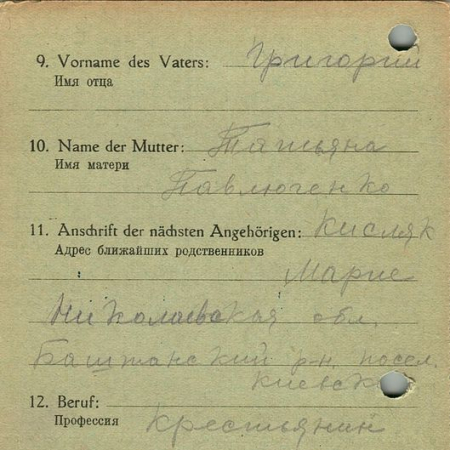 9. Vorname des Vaters: Григорий
Имя отца
10. Name der Mutter: Татьяна
Имя матери
Павлюченко
11. Anschrift der nächsten Angehörigen: Кисляк
Адрес ближайших родственников
Марие
Николаевская обл.
Баштанский р-н. посел.
12. Beruf:
Профессия
Крестьянин